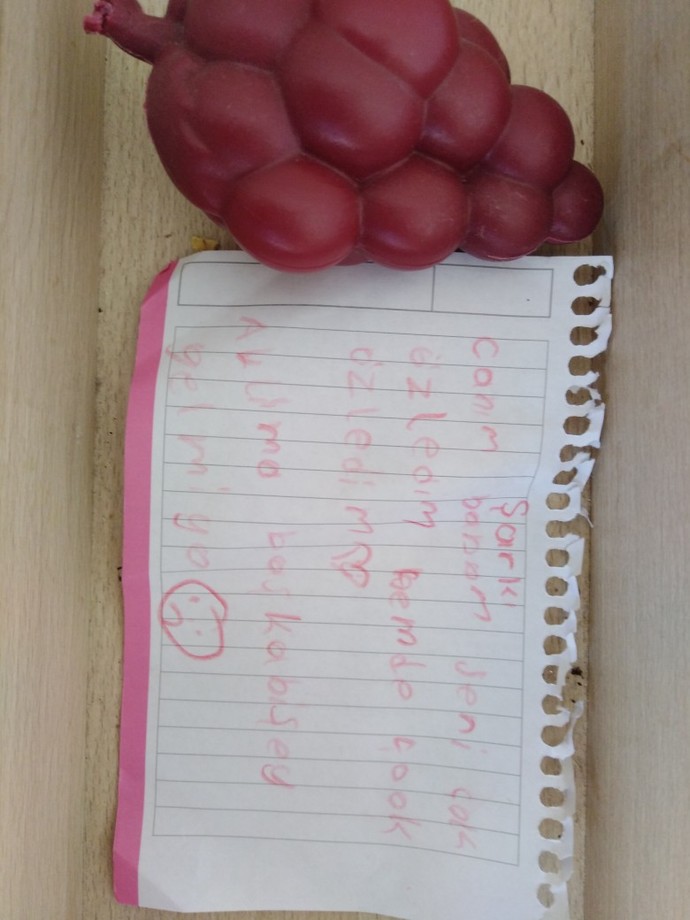 Şarkı
Canım babam seni çok
özledim hemde çook
özledim
Aklıma başkabişey
gelmiyo